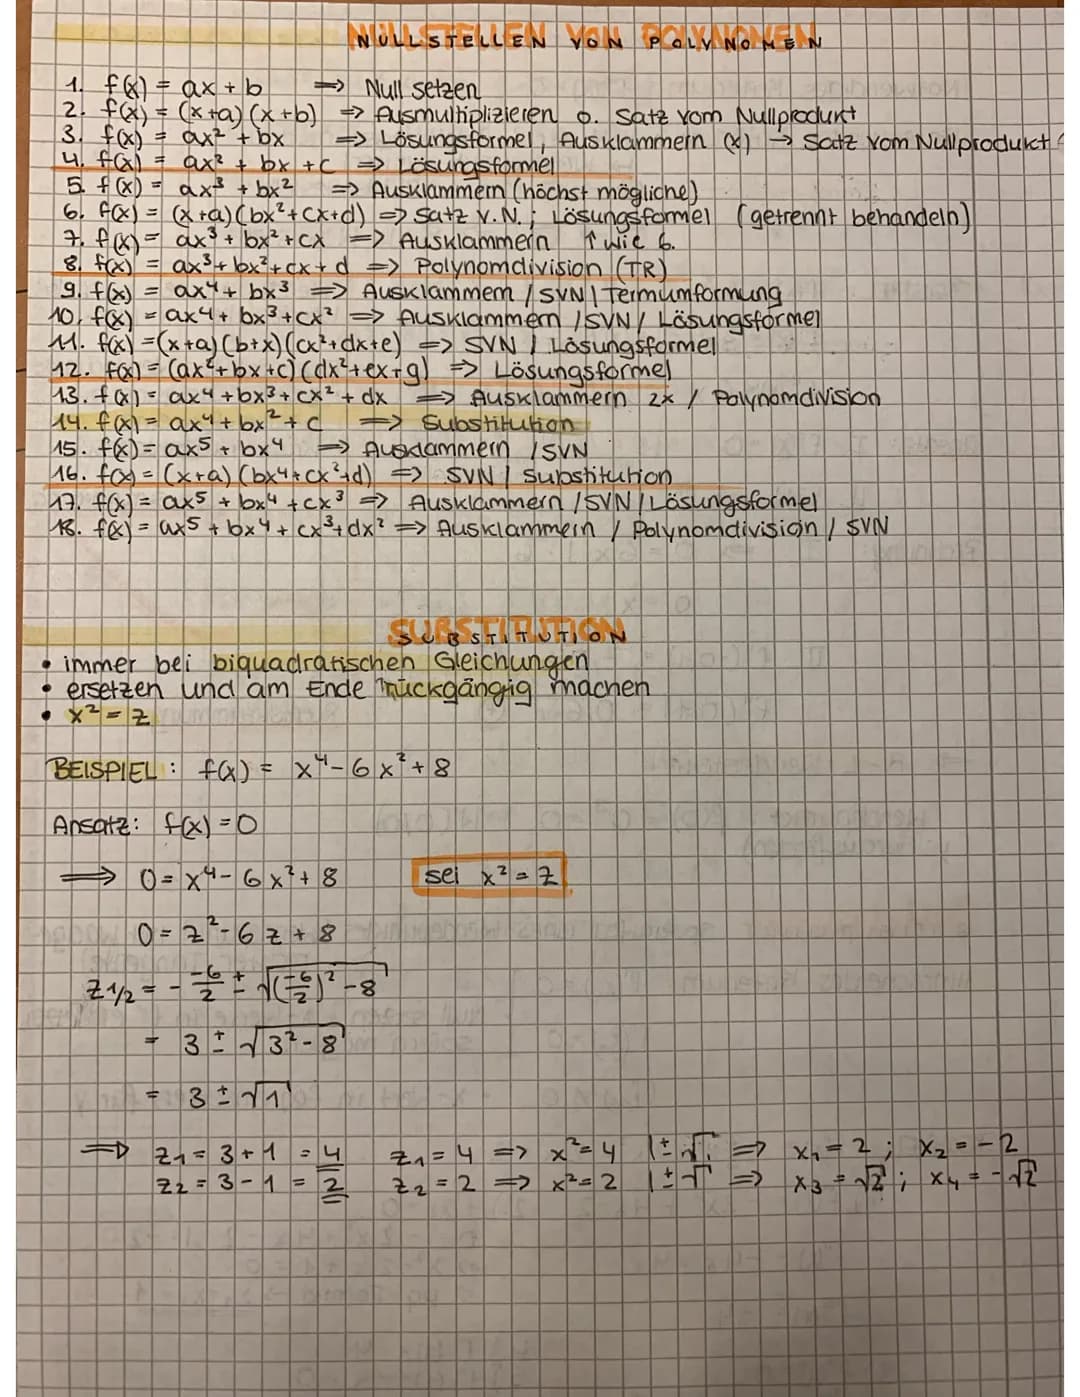 NULLSTELLEN VON POLYNOMEN
1. f(x) = ax + b => Null setzen
2. f(x) = (x+a)(x+b) => Ausmultiplizieren o. Satz vom Nullprodukt
3. f(x) = ax² + bx => Lösungsformel, Ausklammern (x) → Satz vom Nullprodukt
4. f(x) = ax² + bx + c => Lösungsformel
5. f(x) = ax³ + bx² => Ausklammern (höchst mögliche)
6. f(x) = (x+a)(bx²+cx+d) => Satz v.N.; Lösungsformel (getrennt behandeln)
7. f(x) = ax³ + bx² + cx => Ausklammern ↑ wie 6.
8. f(x) = ax³ + bx² + cx + d => Polynomdivision (TR)
9. f(x) = ax⁴ + bx³ => Ausklammern / SVN / Termumformung
10. f(x) = ax⁴ + bx³ + cx² => Ausklammern / SVN / Lösungsformel
11. f(x) = (x+a)(b+x)(cx²+dx+e) => SVN / Lösungsformel
12. f(x) = (ax²+bx+c)(dx²+ex+g) => Lösungsformel
13. f(x) = ax⁴ + bx³ + cx² + dx => Ausklammern 2x / Polynomdivision
14. f(x) = ax⁴ + bx² + c => Substitution
15. f(x) = ax⁵ + bx⁴ => Ausklammern / SVN
16. f(x) = (x+a)(bx⁴+cx²+d) => SVN / Substitution
17. f(x) = ax⁵ + bx⁴ + cx³ => Ausklammern / SVN / Lösungsformel
18. f(x) = ax⁵ + bx⁴ + cx³ + dx² => Ausklammern / Polynomdivision / SVN
SUBSTITUTION
• immer bei biquadratischen Gleichungen
• ersetzen und am Ende rückgängig machen
• x² = z
BEISPIEL: f(x) = x⁴ - 6x² + 8
Ansatz: f(x) = 0
=> 0 = x⁴ - 6x² + 8 sei x² = z
0 = z² - 6z + 8
z1/2 = - -6/2 ± √((-6/2)² - 8)
= 3 ± √(3² - 8)
= 3 ± √1
=> z₁ = 3 + 1 = 4 z₁ = 4 => x² = 4 |±√ => x₁ = 2; x₂ = -2
z₂ = 3 - 1 = 2 z₂ = 2 => x² = 2 |±√ => x₃ = √2; x₄ = -√2